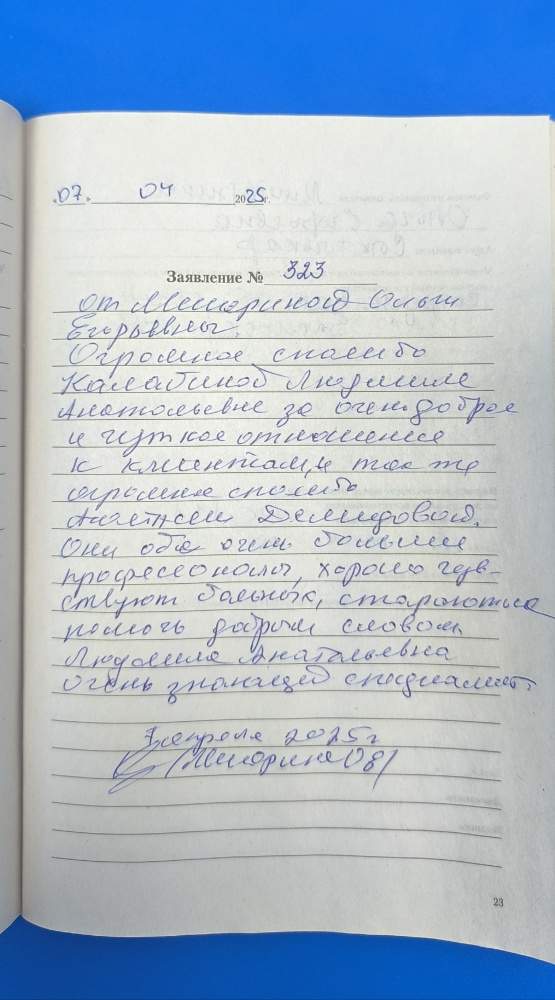 "07" 04 2025г.
Заявление № 323
от Ольги
Егорьевны.
Огромное спасибо
Калабиной Людмиле
Анатольевне за очень доброе
и чуткое отношение
к клиентам, и так же
огромное спасибо
Анастасии Демидовой.
Они обе очень большие
профессионалы, хорошо чув-
ствуют больных, стараються
помочь добрым словом
Людмила Анатольевна
очень знающий специалист.
7 апреля 2025 г
23